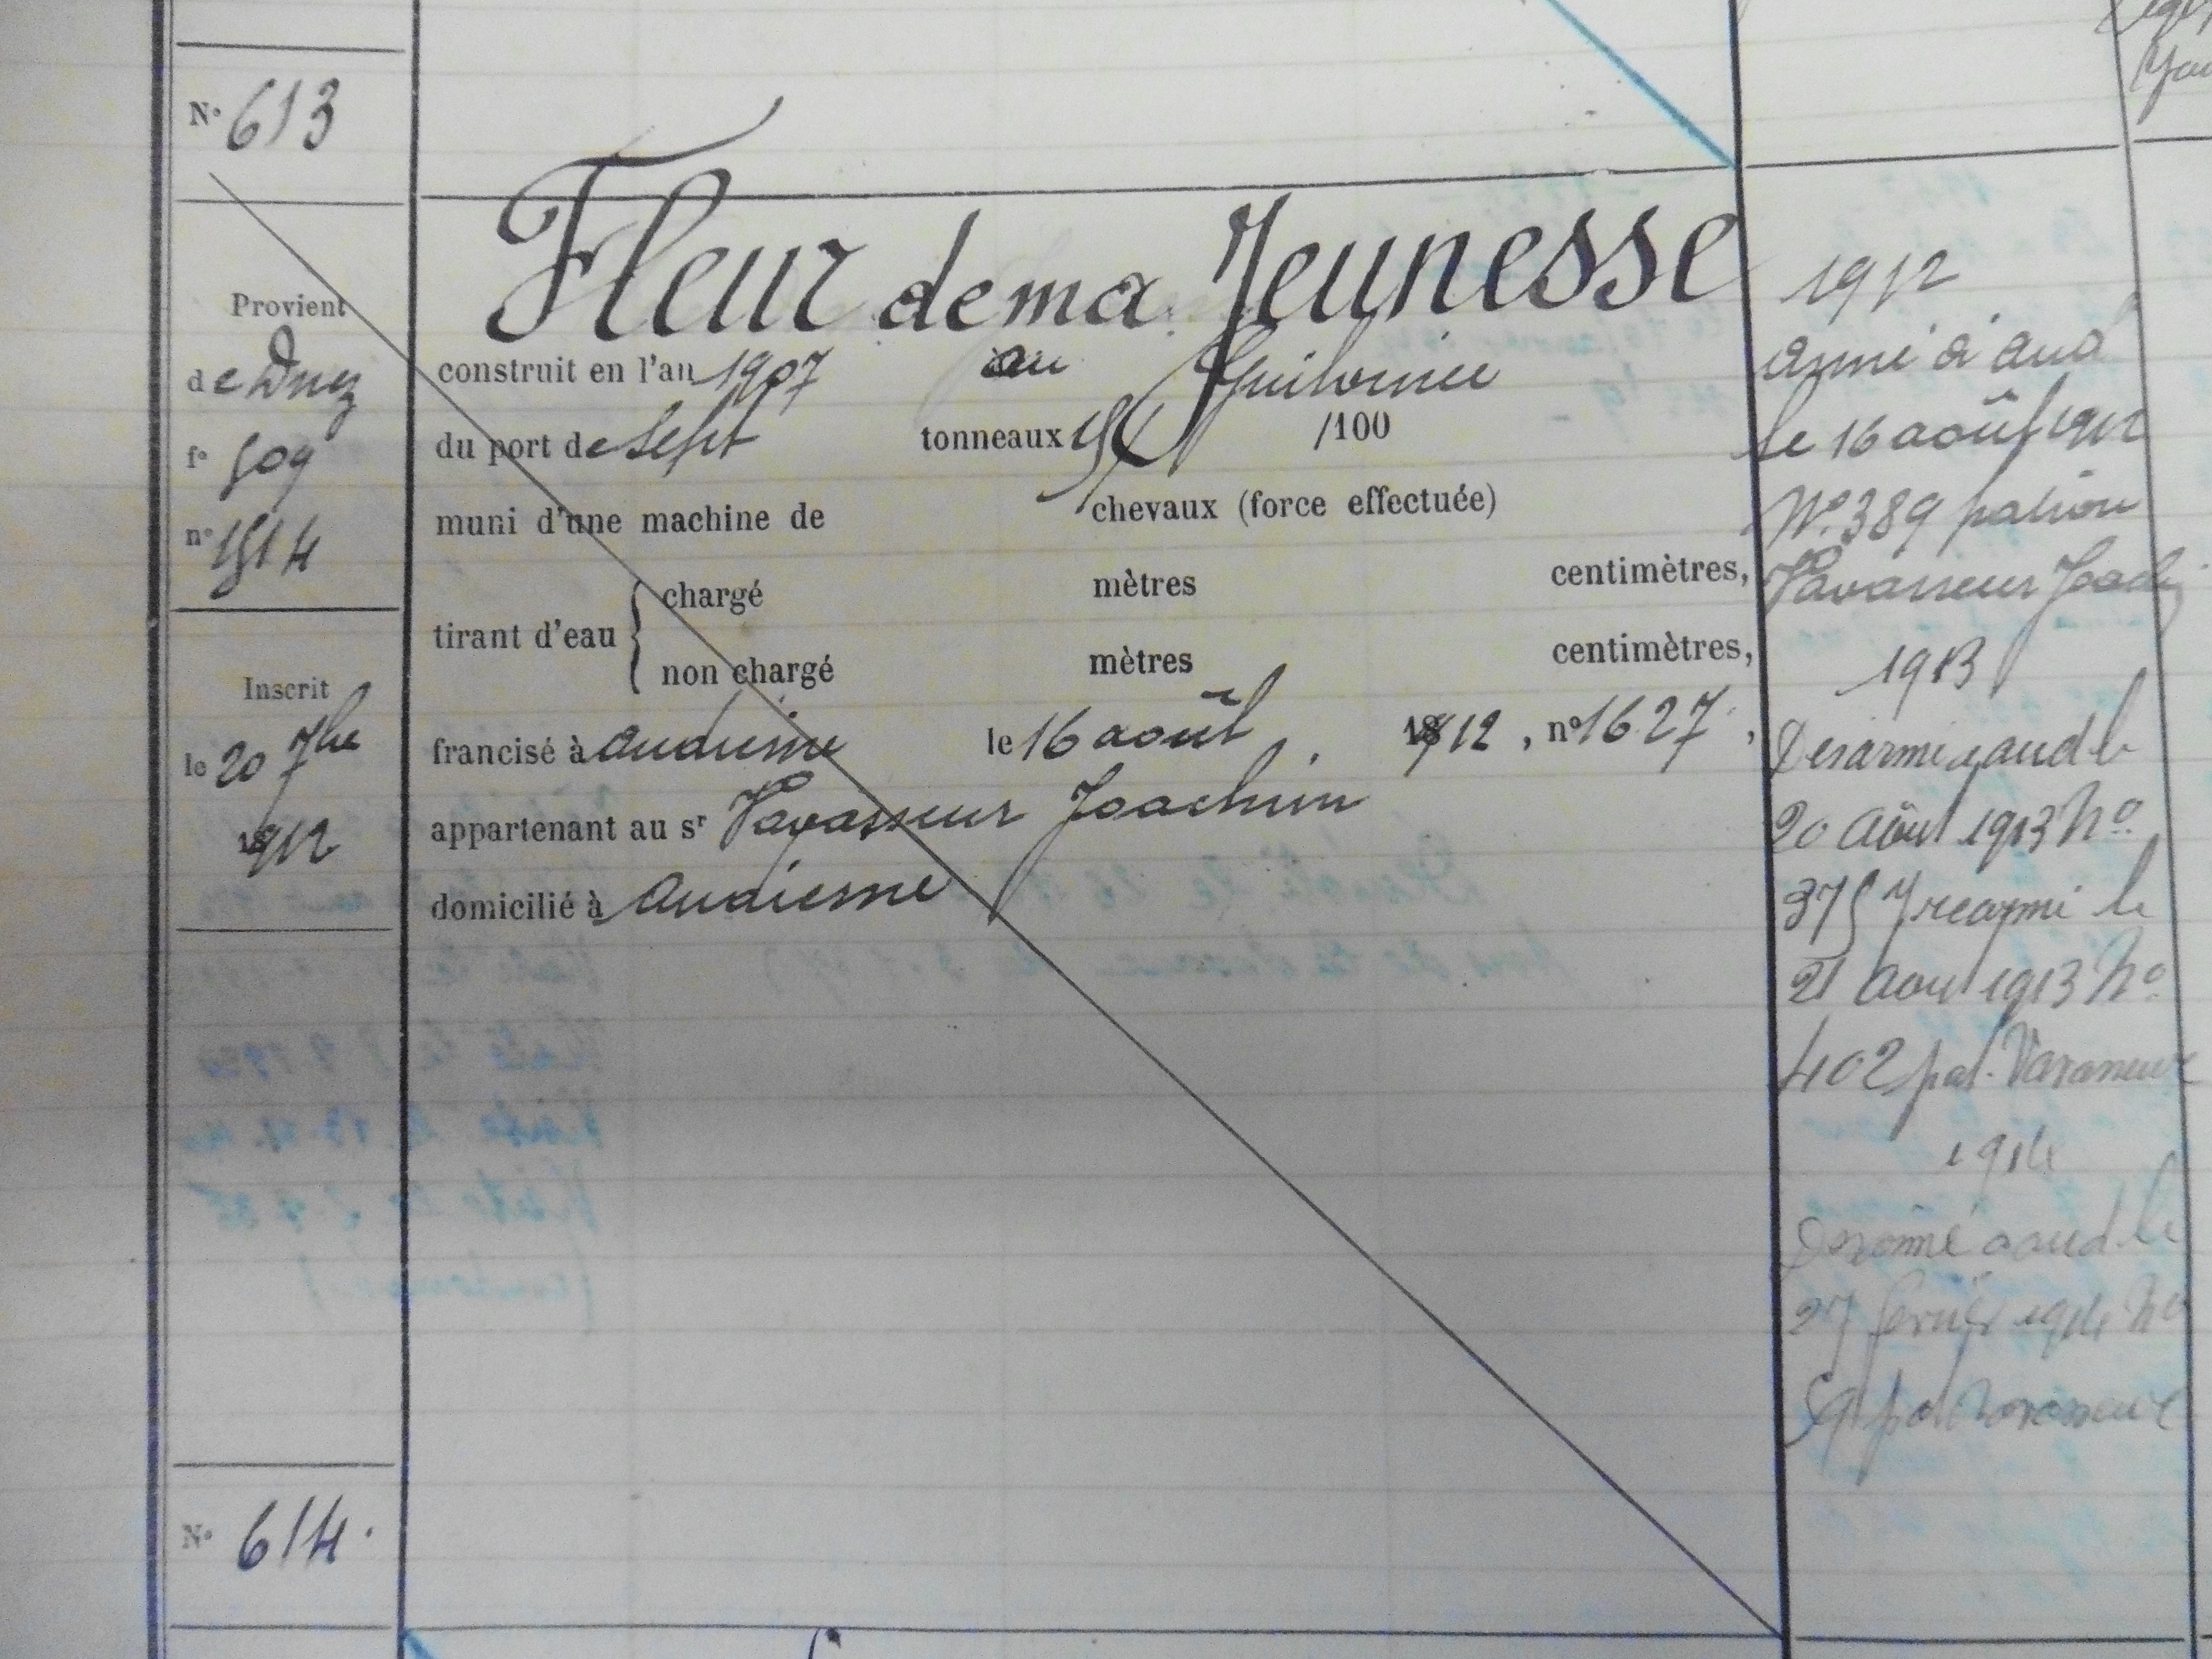 N° 613
Fleur de ma Jeunesse
Provient
de Dnez
f° 509
n° 1514
Inscrit
le 20 7bre
1912
construit en l'an 1907 au Guilvinec
du port de Sept tonneaux /100
muni d'une machine de chevaux (force effectuée)
tirant d'eau { chargé mètres centimètres,
non chargé mètres centimètres,
francisé à Audierne le 16 août 1912, n° 1627,
appartenant au sr Vavasseur Joachim
domicilié à Audierne
1912
armé à aud
le 16 août 1912
N° 389 patron
Vavasseur Joachi
1913
Desarmé a aud le
20 Août 1913 N°
375 rearmé le
21 Aout 1913 N°
402 pat. Vavasseur
1914
Desarmé a aud le
27 fevrier 1914 N°
59 pat Vavasseur
N° 614.